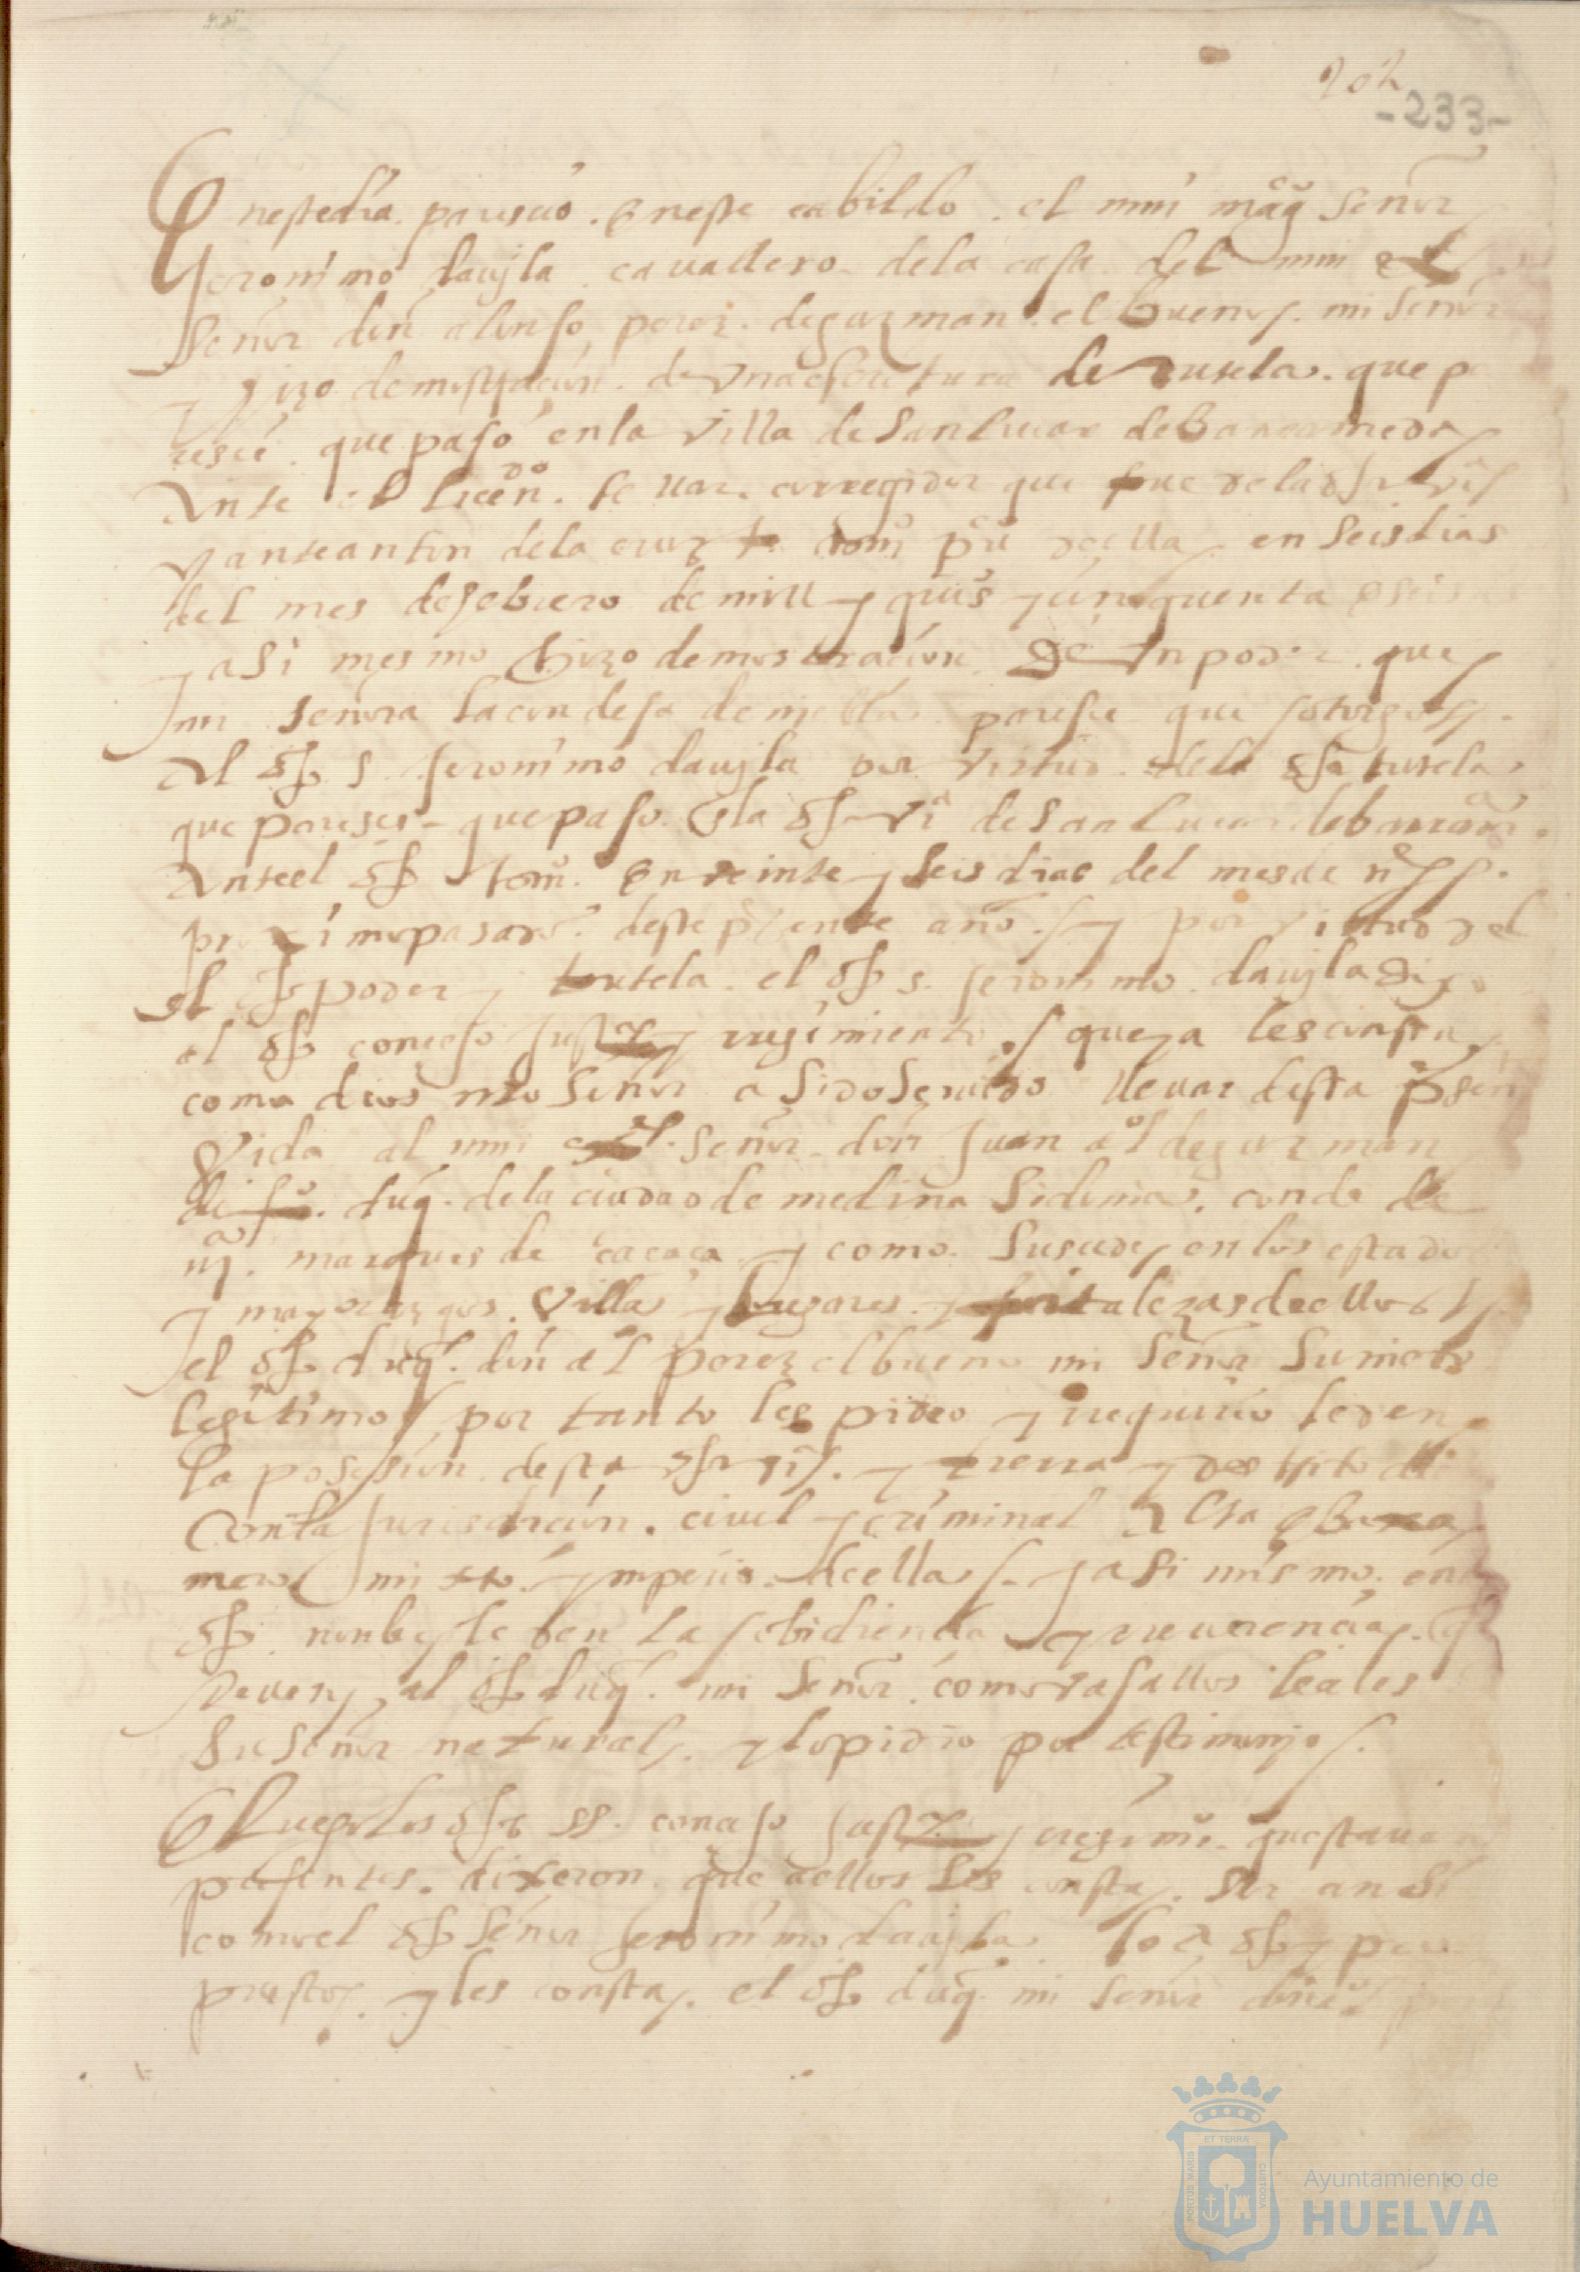 202
-233-
Enestedia paresció eneste cabildo el mui magco señor
Geronimo davila cavallero de la casa del mui exte
señor don alonso perez de guzman el bueno mi señor
y hizo demostraçión de una escritura de tutela que pa
resce que pasó en la villa de San lucar de barrameda
ante el licendo corregidor que fue de la dha va
y ante anton de la cruz puco della en seis dias
del mes de febrero de mill y quis y cinquenta e seis
y asi mesmo hizo demostración de un poder que
mi señora la condesa de niebla paresce que otorgó
al dho s geronimo davila por virtud de la dha tutela
que paresce que paso en la dha va de San lucar de barrama
ante el dho en veinte y seis dias del mes de
proximo pasado deste presente año y por virtud del
el dho poder y tutela el dho s geronimo davila dixo
al dho concejo just y regimiento que ya les consta
como dios nro señor a sido servido llevar desta presen
vida al mui exte señor don juan al de guzman
difu duq de la ciudad de medina sidonia conde de
nia marques de caçaça y como sucede en los estados
y mayorazgos villas y lugares y fortalezas dellos
el dho duq don al perez el bueno mi señor su nieto
legitimo por tanto les pidio y requirio le den
la posesión desta dha va y tierra y destrito
con la jurisdicion civil y criminal alta e baxa
mero misto ymperio della y asi mismo en
dho nonbre le den la obidiencia y reverencia q
deven al dho duq mi señor como vasallos leales
su señor natural y lo pidio por testimonio
E luego los dhos ss concejo just y regimio questavan
presentes dixeron que a ellos les consta ser ansi
como el dho señor geronimo davila lo a dho y
prestos y les consta el dho duq mi señor don al
Ayuntamiento de
HUELVA
PORTUS MARIS
ET TERRÆ
CUSTODIA